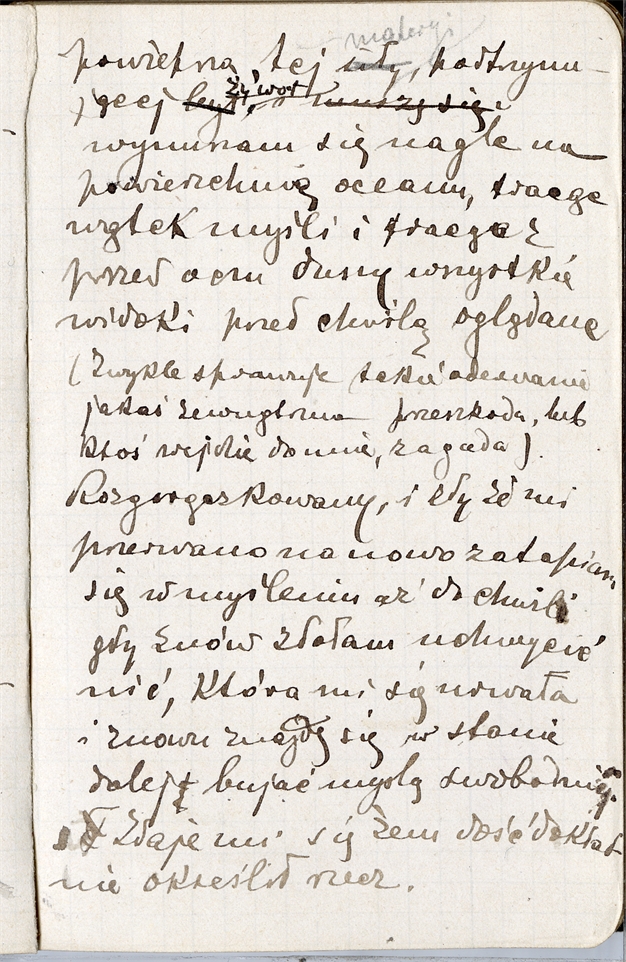 materyi
powietrzną tej siły, podtrzymu-
jącej byt, żywot muszę się
wynurzam się nagle na
powierzchnię oceanu, tracąc
wątek myśli i tracąc z
przed oczu duszy wszystkie
widoki przed chwilą oglądane
(Zwykle sprawuje takie oderwanie
jakaś zewnętrzna przeszkoda, lub
ktoś wejdzie do mnie, zagada).
Rozgorączkowany, i zły że mi
przerwano na nowo zatapiam
się w myśleniu aż do chwili
gdy znów zdołam uchwycić
nić, która mi się urwała
i znowu znajdę się w stanie
dalej bujać myślą swobodnie.
Zdaje mi się żem dość dokład-
nie określił rzecz.